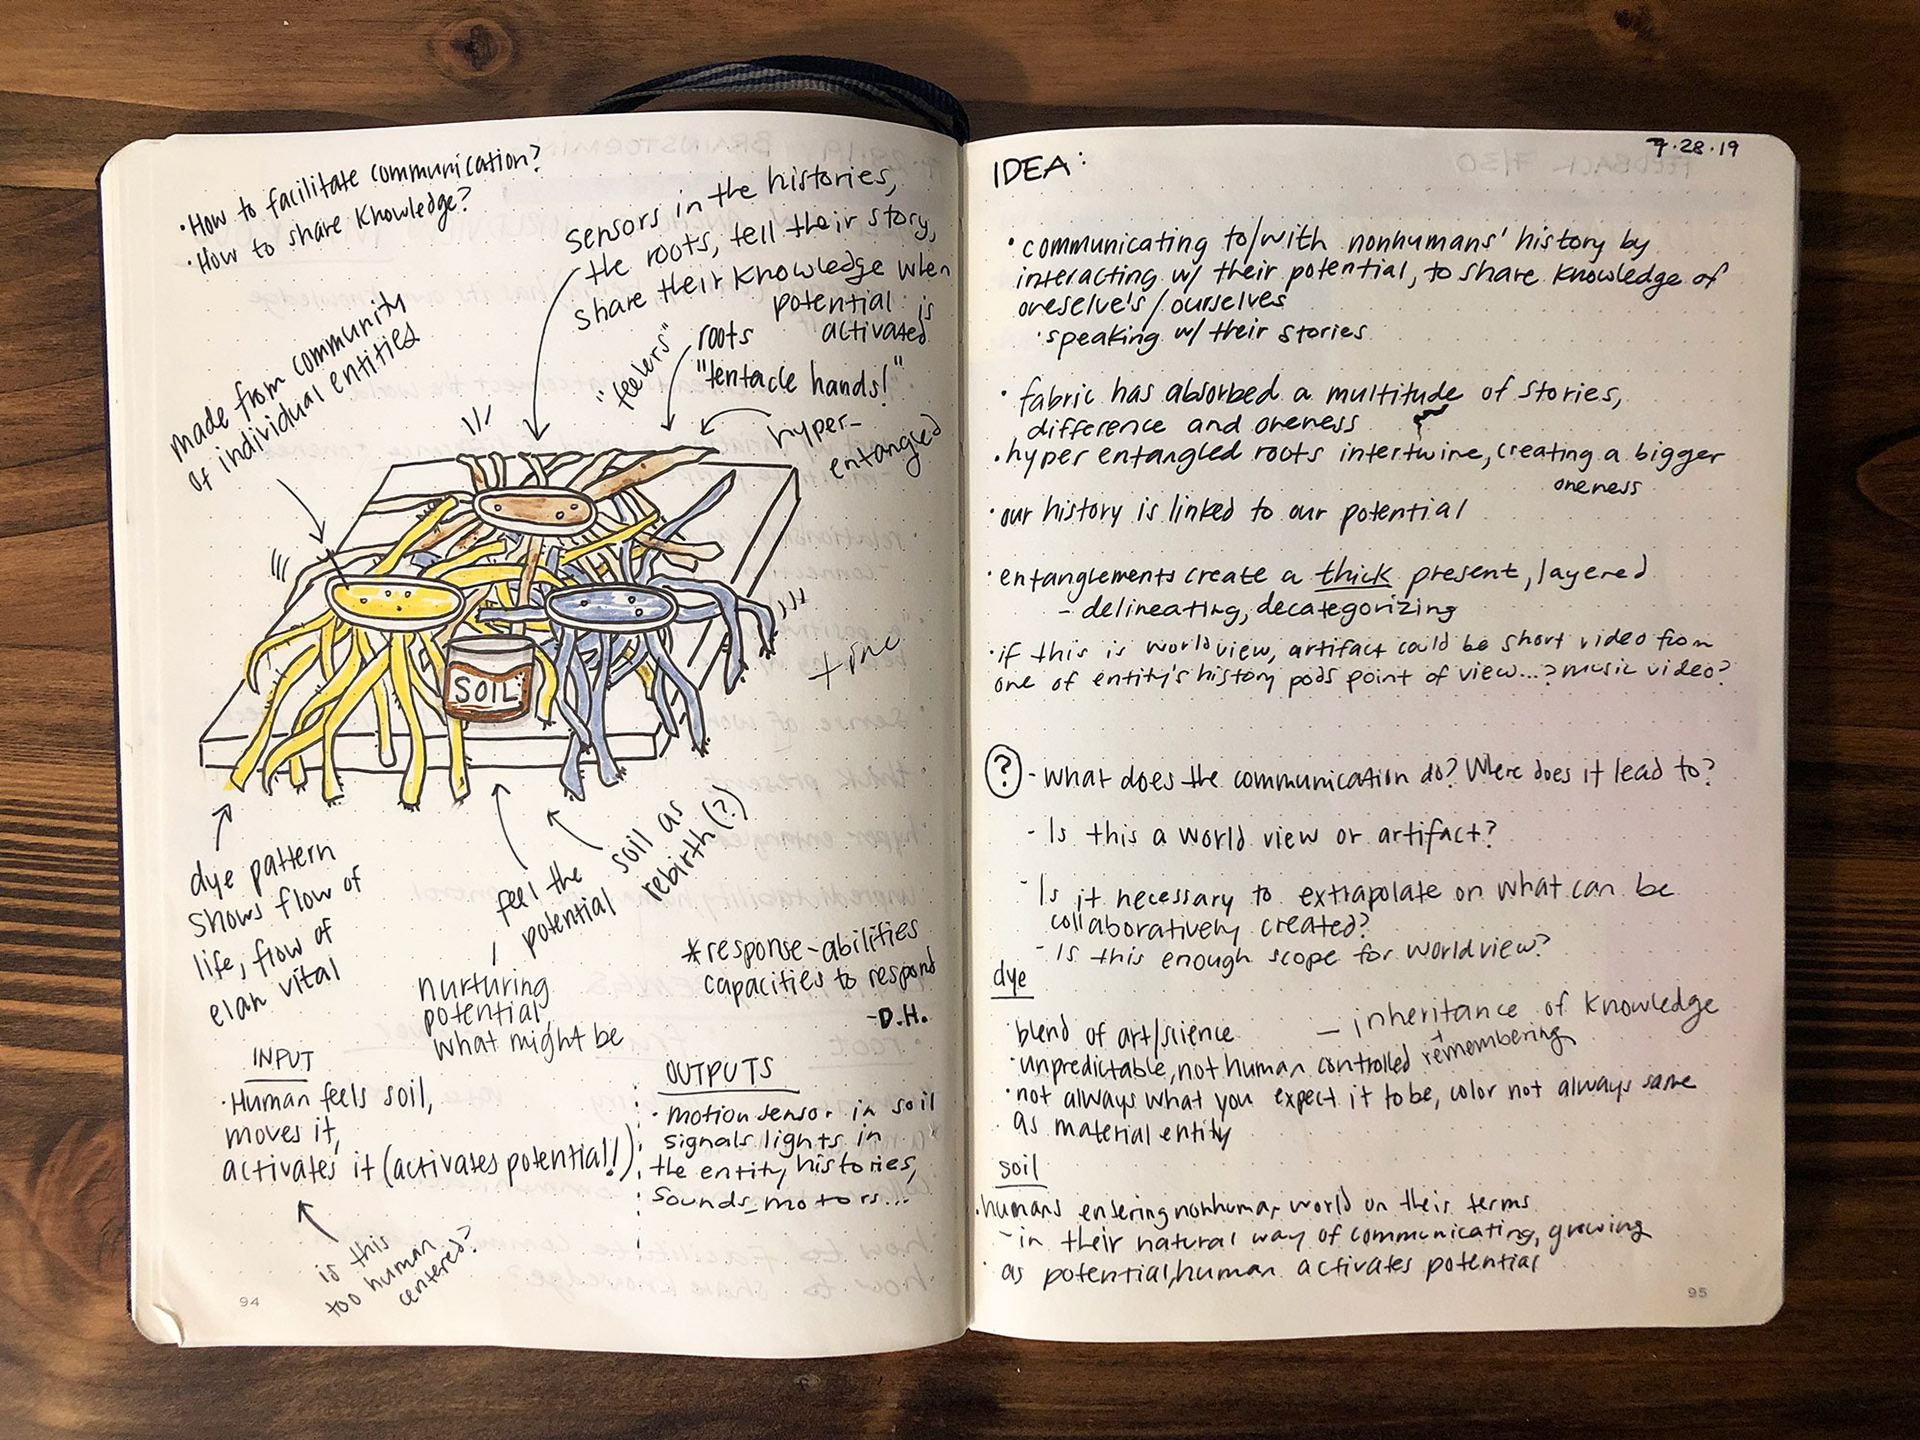 • How to facilitate communication?
• How to share knowledge?
sensors in the histories,
the roots, tell their story,
share their knowledge when
potential is
activated
made from community
of individual entities
"feelers"
roots
"tentacle hands!"
hyper-
entangled
SOIL
dye pattern
shows flow of
life, flow of
elan vital
feel the
potential
soil as
rebirth(?)
nurturing
potential,
what might be
*response-abilities
capacities to respond
-D.H.
INPUT
• Human feels soil,
moves it,
activates it (activates potential!!)
is this
too human
centered?
OUTPUTS
• motion sensor in soil
signals lights in
the entity histories,
sounds, motors...
94
7.28.19
IDEA:
• communicating to/with nonhumans' history by
interacting w/ their potential, to share knowledge of
oneselve's/ourselves
• speaking w/ their stories
• fabric has absorbed a multitude of stories,
difference and oneness
• hyper entangled roots intertwine, creating a bigger
oneness
• our history is linked to our potential
• entanglements create a thick present, layered
- delineating, decategorizing
• if this is worldview, artifact could be short video from
one of entity's history pods point of view...? music video?
? - What does the communication do? Where does it lead to?
- Is this a world view or artifact?
- Is it necessary to extrapolate on what can be
collaboratively created?
- Is this enough scope for worldview?
dye
blend of art/science
— inheritance of knowledge
+ remembering
• unpredictable, not human controlled
• not always what you expect it to be, color not always same
as material entity
soil
• humans entering nonhuman world on their terms
- in their natural way of communicating, growing
• as potential, human activates potential
95